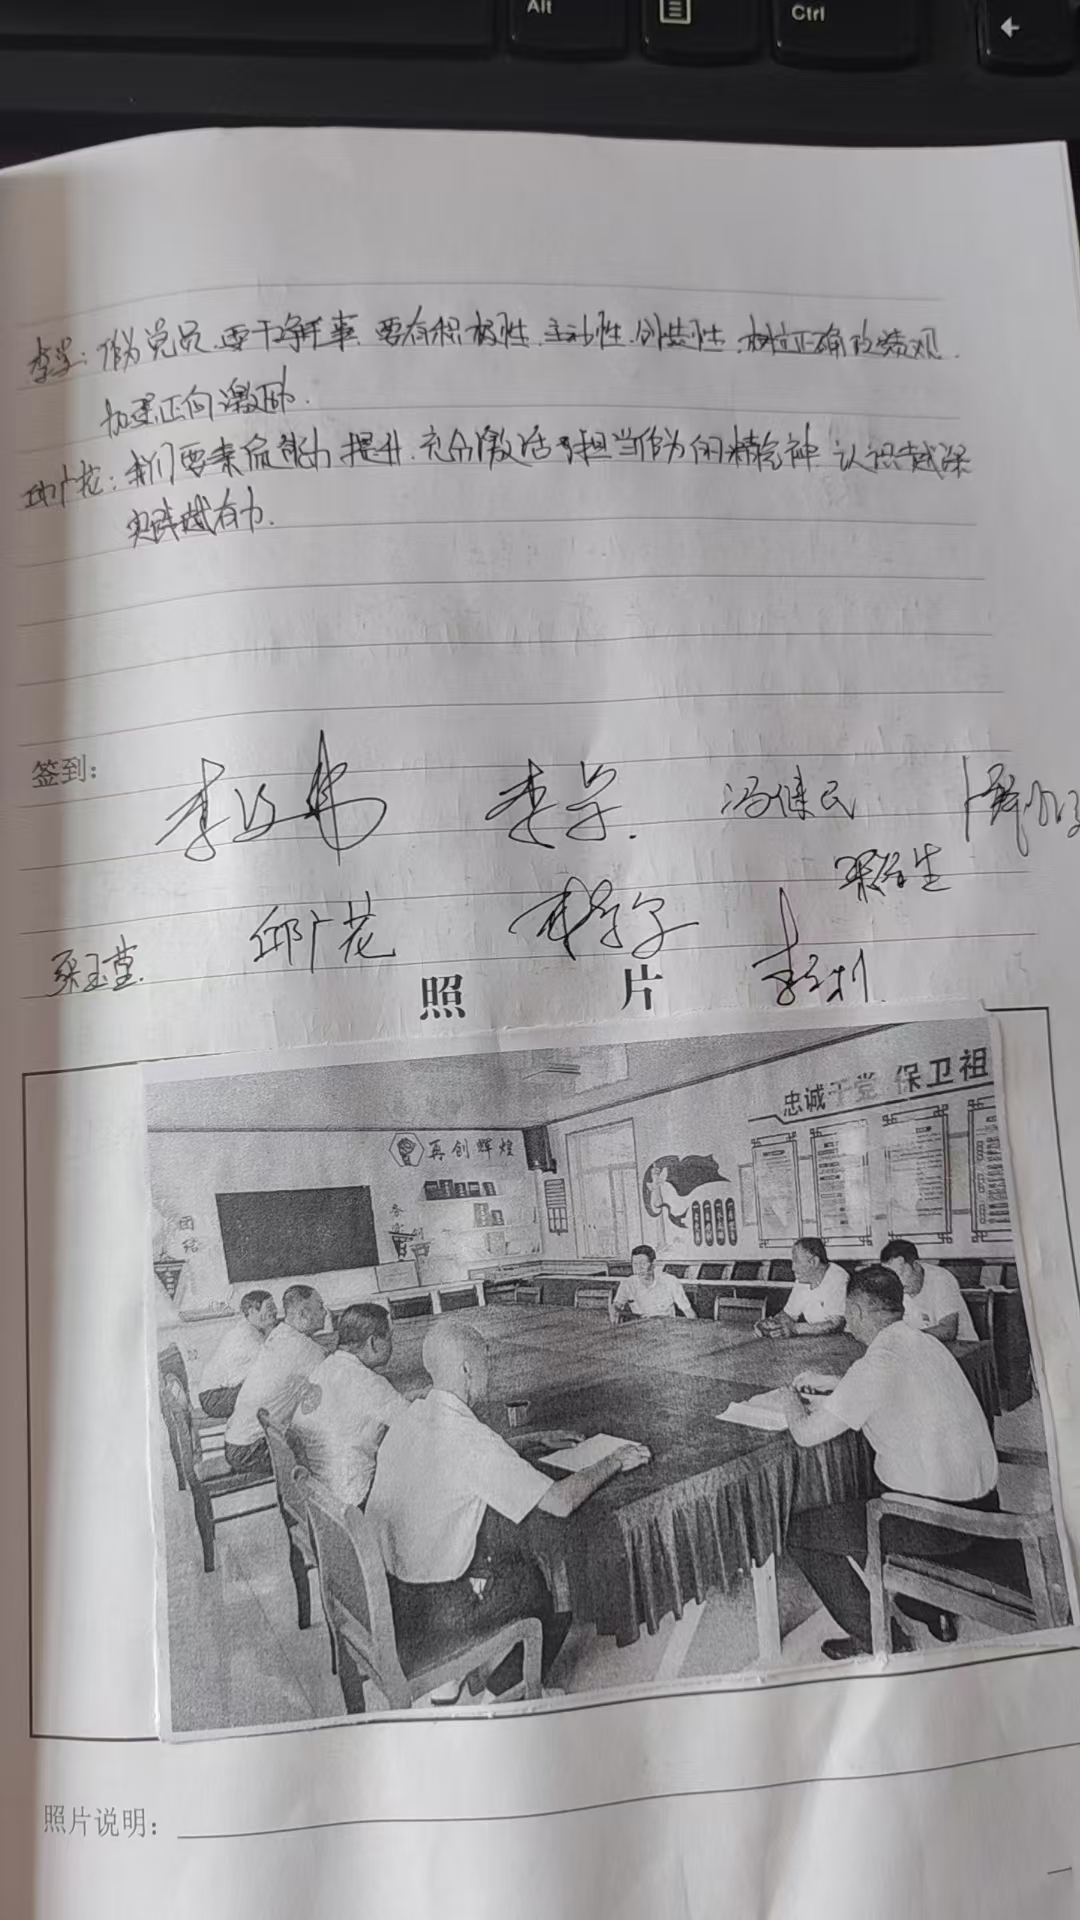 Alt
Ctrl
李学：作为党员，要干净干事，要有积极性、主动性、创造性，树立正确政绩观
加强正向激励．
邱广花：我们要素质能力提升，充分激活担当作为的精气神 认识越深
实践越有力．
签到：
李 李学． 冯继民
生
张玉堂． 邱广花 李
照 片
忠诚于党 保卫祖
再创辉煌
团结
照片说明：